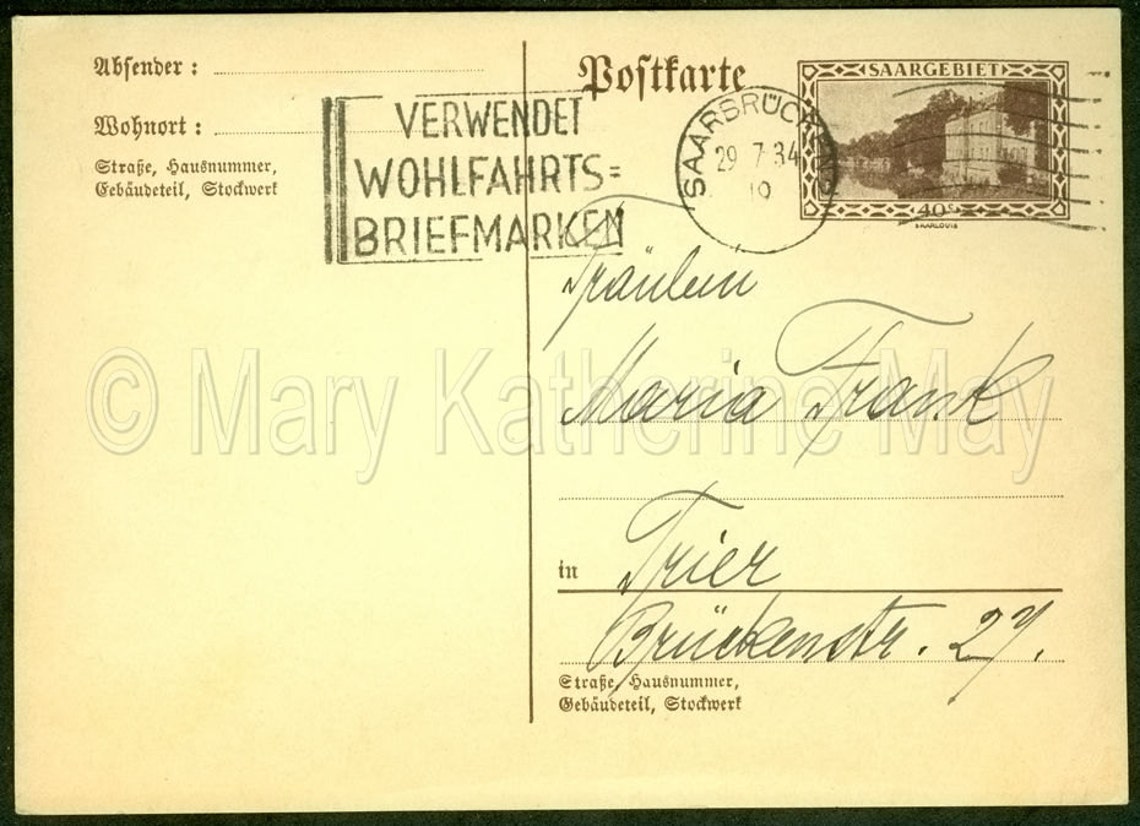 Absender :
Wohnort :
Straße, Hausnummer,
Gebäudeteil, Stockwerk
VERWENDET
WOHLFAHRTS=
BRIEFMARKEN
Postkarte
SAARBRÜCKEN
29 7 34
SAARGEBIET
40 c
SAARLOUIS
Fräulein
Maria Frank
in Trier
Brückenstr. 27.
Straße, Hausnummer,
Gebäudeteil, Stockwerk
© Mary Katherine May